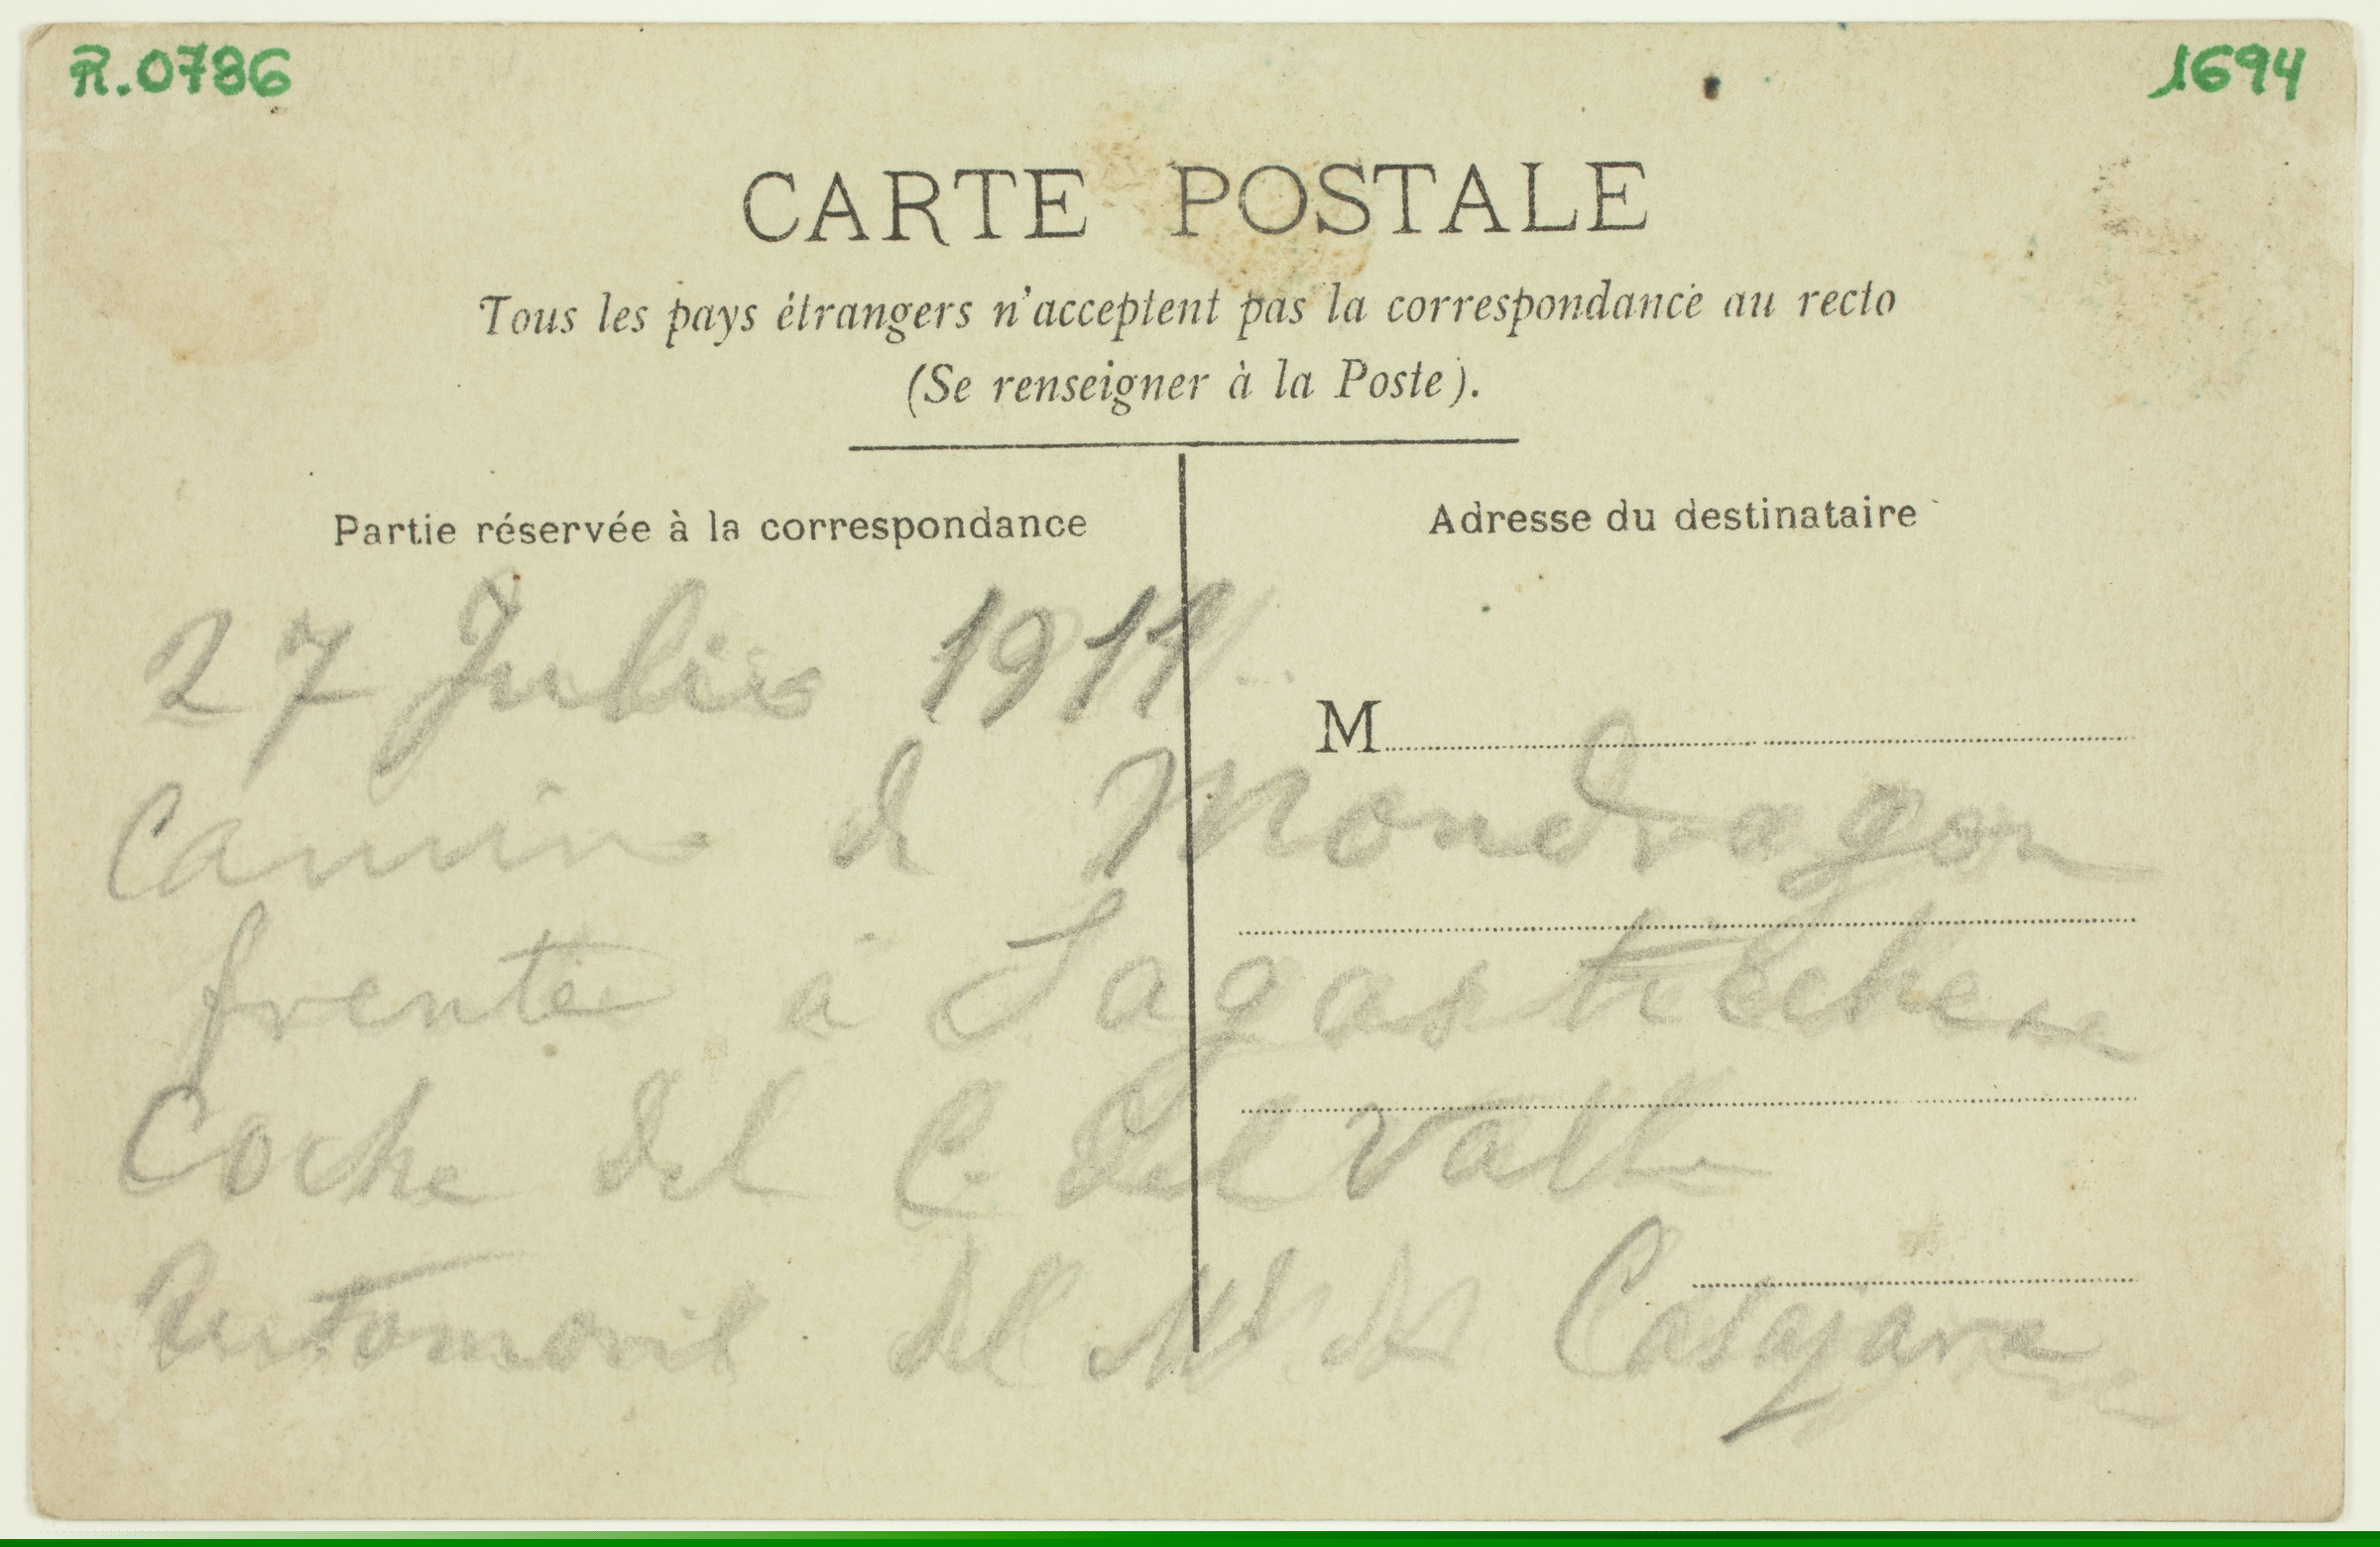 R.0786
1694
CARTE POSTALE
Tous les pays étrangers n'acceptent pas la correspondance au recto
(Se renseigner à la Poste).
Partie réservée à la correspondance
Adresse du destinataire
M
27 Julio 1911
Camino de Mondragon
frente a
Coche del C. del Valle
Automovil del M. de Casajara